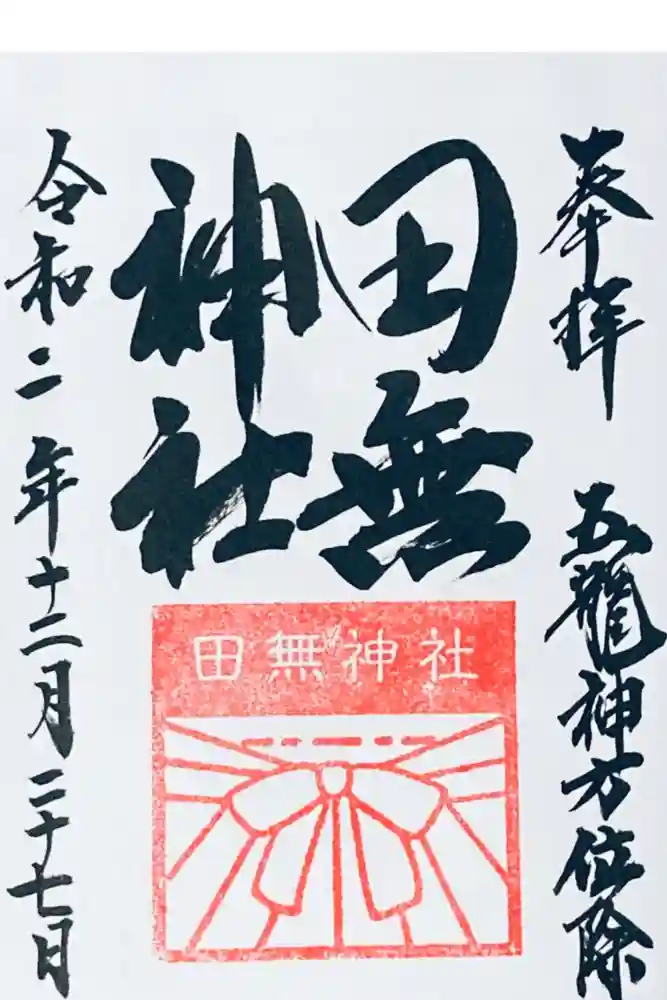 奉拝
五龍神方位除
田無
神社
田無神社
令和二年十二月二十七日